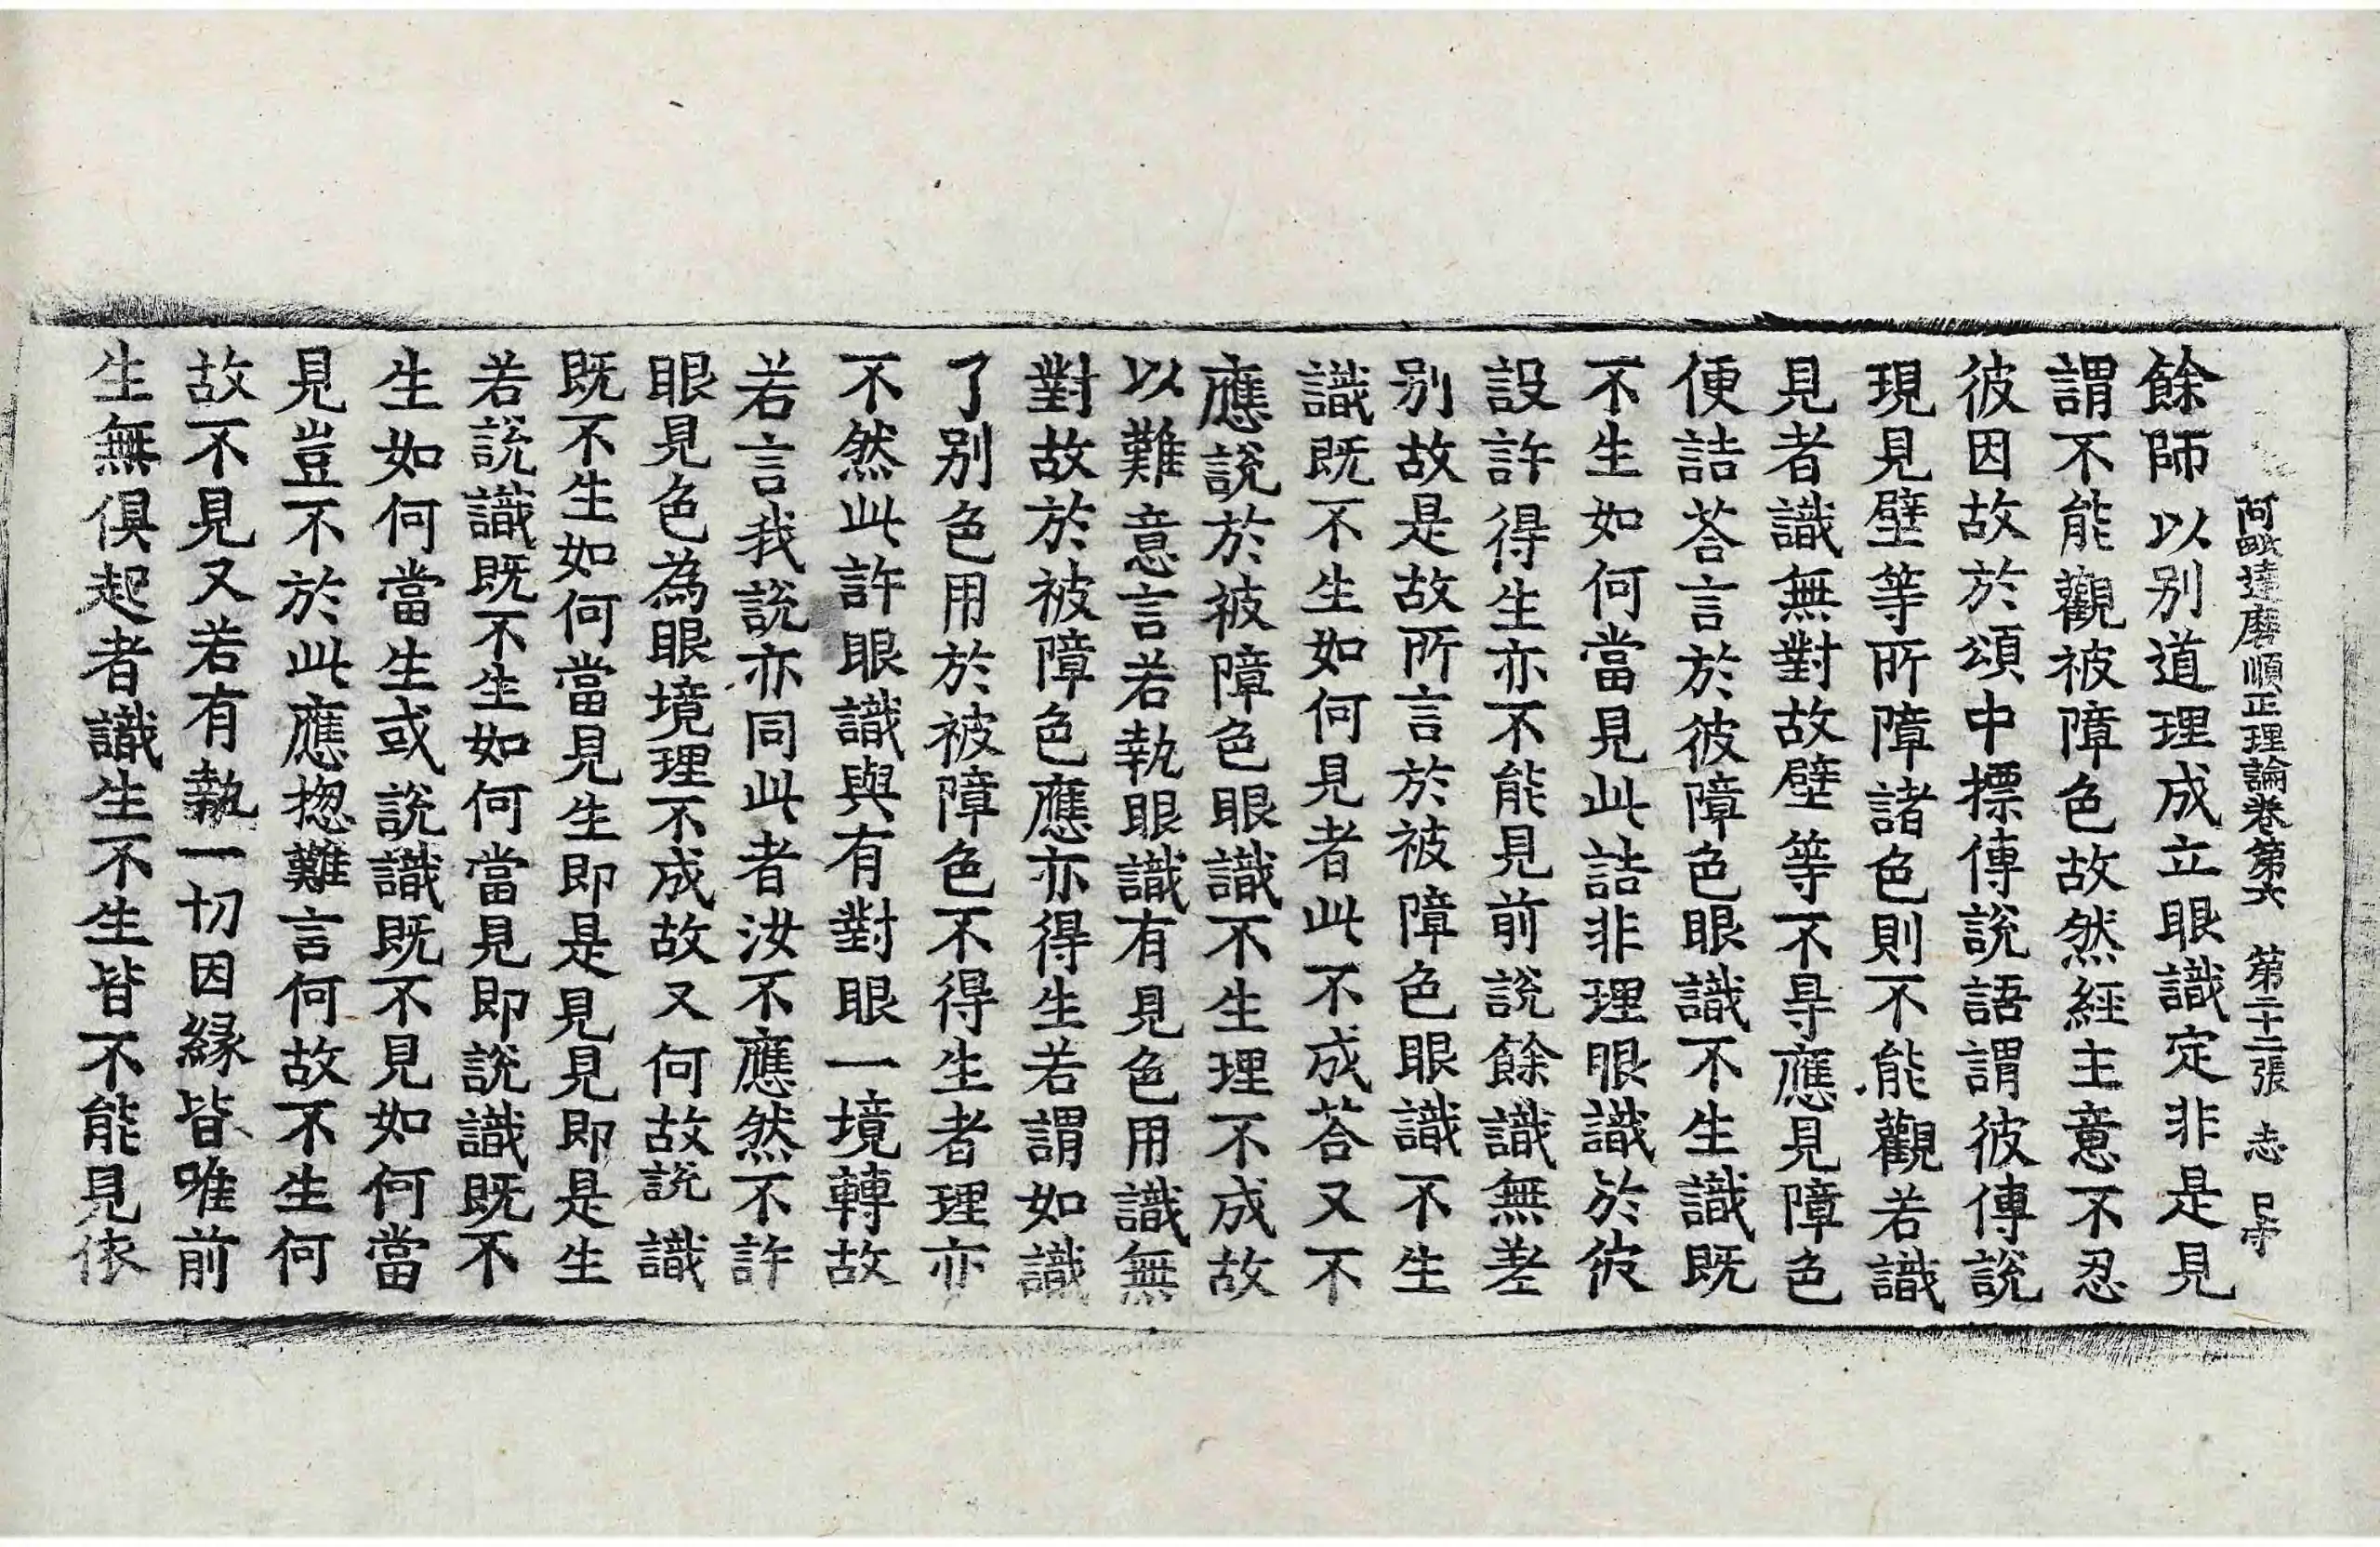 阿毗達磨順正理論卷第六 第二十二張 志
餘師以别道理成立眼識定非是見
謂不能觀被障色故然經主意不忍
彼因故於頌中摽傳說語謂彼傳說
現見壁等所障諸色則不能觀若識
見者識無對故壁等不㝵應見障色
便詰荅言於彼障色眼識不生識既
不生如何當見此詰非理眼識於彼
設許得生亦不能見前說餘識無差
别故是故所言於被障色眼識不生
識既不生如何見者此不成荅又不
應說於被障色眼識不生理不成故
以難意言若執眼識有見色用識無
對故於被障色應亦得生若謂如識
了别色用於被障色不得生者理亦
不然此許眼識與有對眼一境轉故
若言我說亦同此者汝不應然不許
眼見色為眼境理不成故又何故說識
既不生如何當見生即是見見即是生
若說識既不生如何當見即說識既不
生如何當生或說識既不見如何當
見豈不於此應揔難言何故不生何
故不見又若有執一切因緣皆唯前
生無俱起者識生不生皆不能見依